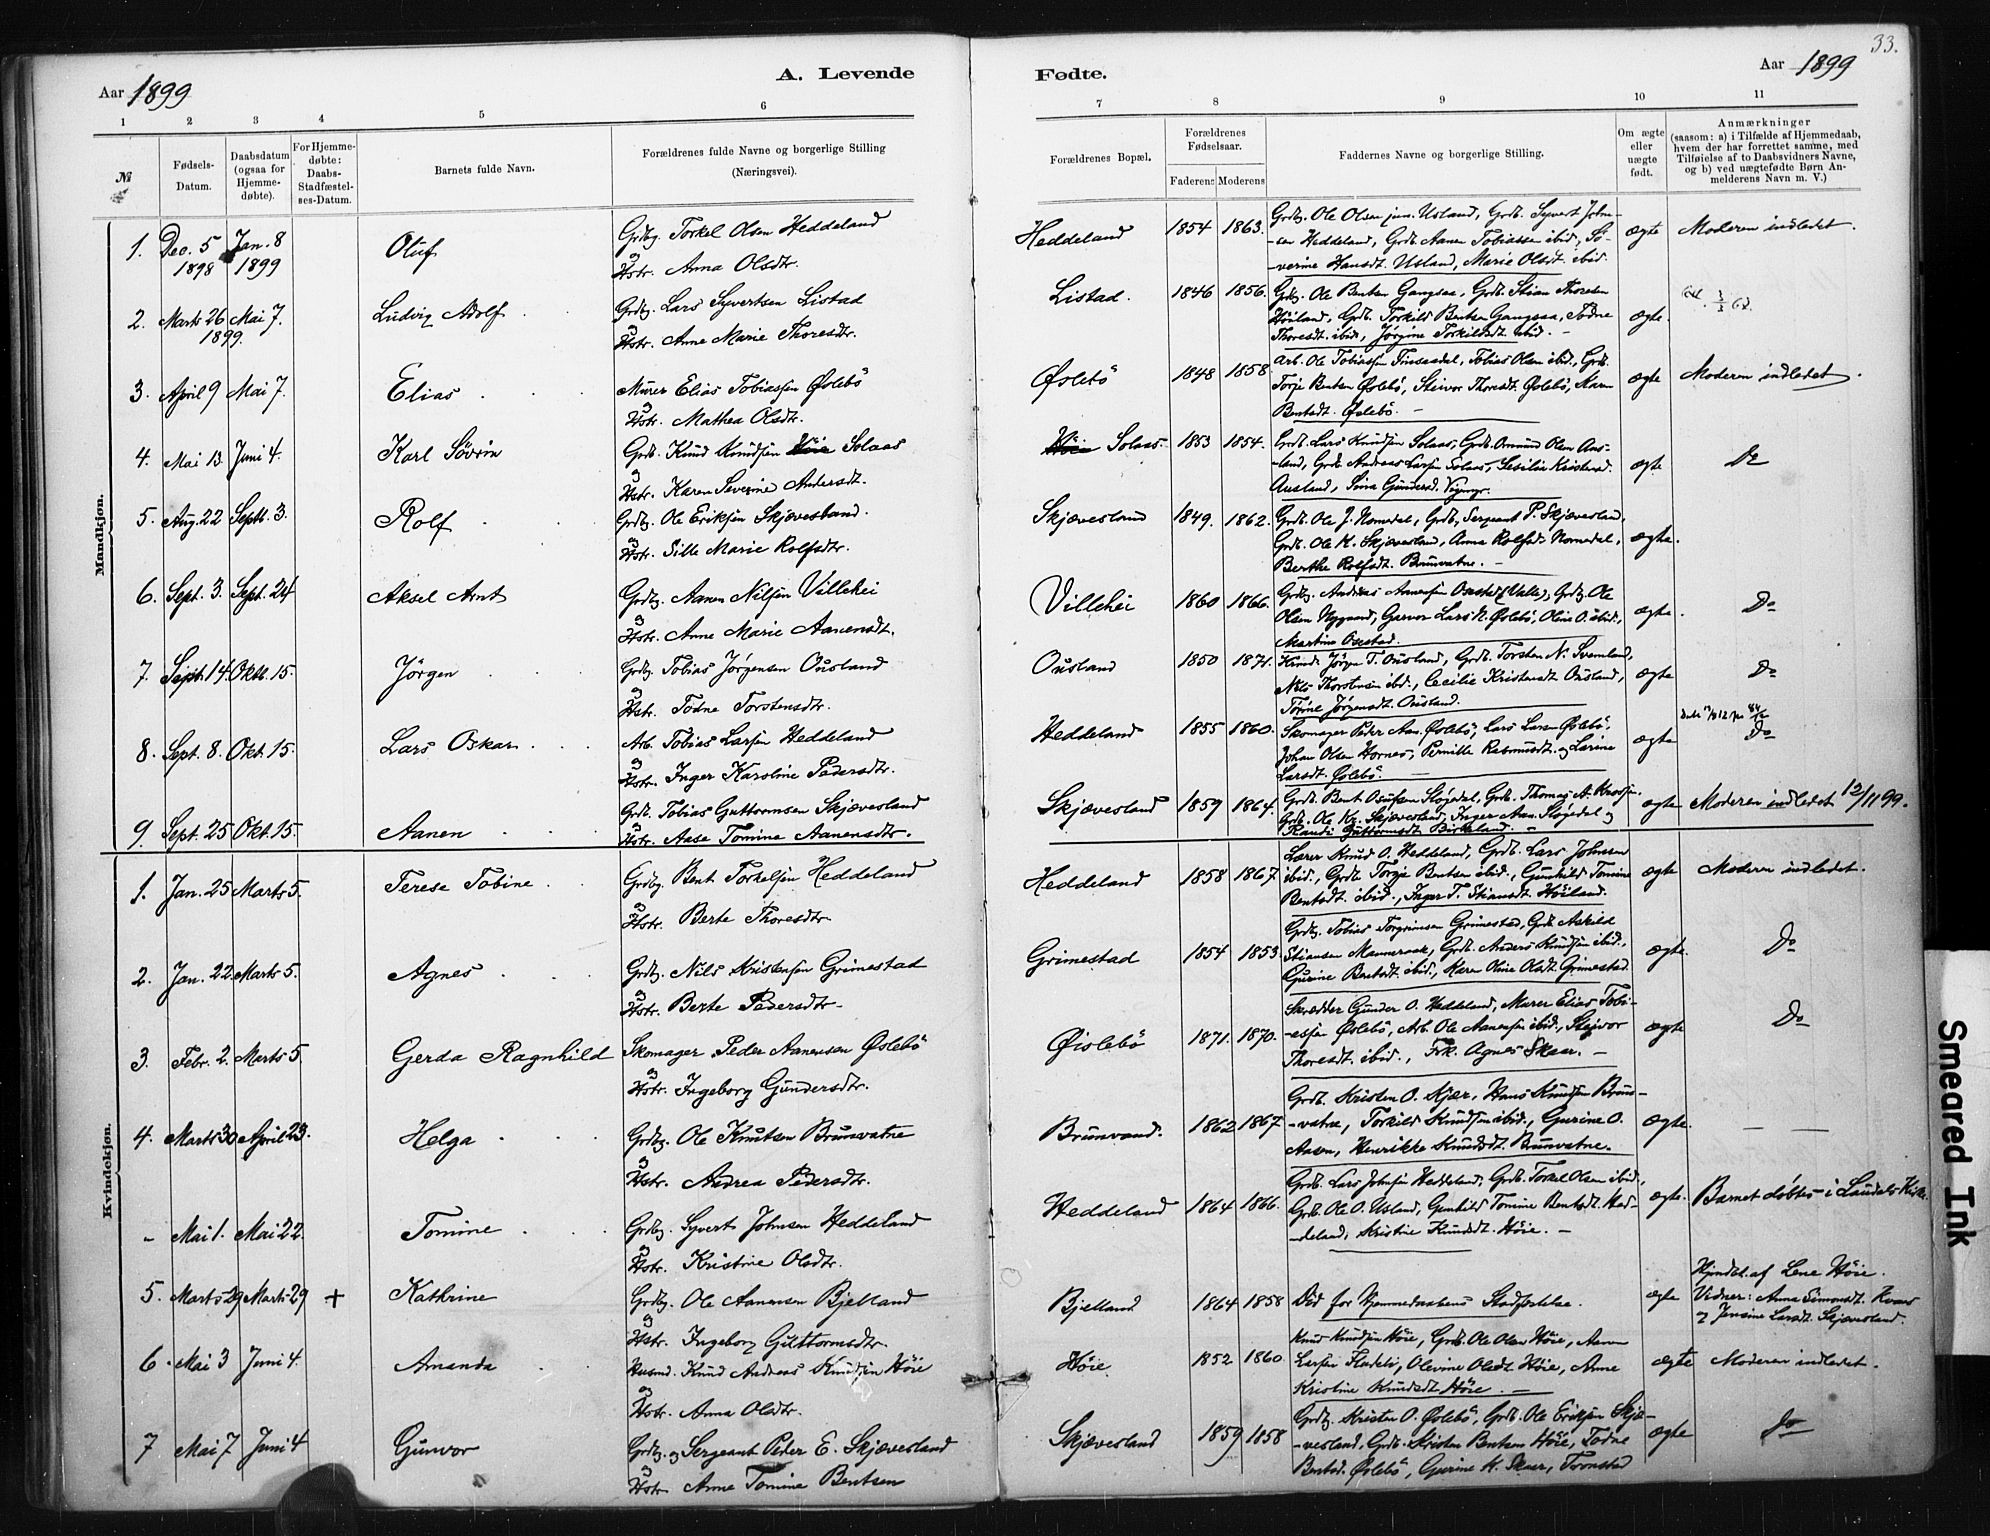 33.
Aar 1899
A. Levende
Fødte.
Aar 1899
1 2 3 4 5 6 7 8 9 10 11
№
Fødsels-Datum.
Daabsdatum (ogsaa for Hjemmedøbte).
For Hjemmedøbte: Daabs-Stadfæstelses-Datum.
Barnets fulde Navn.
Forældrenes fulde Navne og borgerlige Stilling (Næringsvei).
Forældrenes Bopæl.
Forældrenes Fødselsaar.
Faderens Moderens
Faddernes Navne og borgerlige Stilling.
Om ægte eller uægte født.
Anmærkninger
(saasom: a) i Tilfælde af Hjemmedaab, hvem der har forrettet samme, med Tilføielse af to Daabsvidners Navne, og b) ved uægtefødte Børn Anmelderens Navn m. V.)
Mandkjøn.
1. Dec. 5 1898 Jan. 8 1899 Oluf
Grdbg. Torkel Olsen Heddeland
og
Hstr. Anna Olsdtr.
Heddeland 1854 1863.
Grdbg. Ole Olsen jun. Usland, Grdb. Syvert John-
-sen Heddeland, Grdb. Aanen Tobiassen ibid., Sø-
-verine Hansdt. Usland, Marie Olsdt. ibid.
ægte Moderen indledet.
2. Marts 26 1899. Mai 7. Ludvig Adolf
Grdbg. Lars Syvertsen Listad
og
Hstr. Anne Marie Thoresdtr.
Listad. 1846 1856.
Grdbg. Ole Bentsen Gangsaa, Grdb. Stian Thoresen
Höiland, Grdb. Torkild Bentsen Gangsaa, Todne
Thoresdt. ibid., Jørgine Torkildsdt. ibid. –
ægte.
3. April 9 Mai 7. Elias
Murer Elias Tobiassen Øslebö
og
Hstr. Mathea Olsdtr.
Øslebö 1848 1858
Arb. Ole Tobiassen Finsaadal, Tobias Olsen ibid., Grdb.
Torje Bentsen Øslebö, Steivor Thoresdt. Øslebö, Karen
Bentsdt. Øslebö. –
ægte Moderen indledet.
4. Mai 13. Juni 4. Karl Sövrin
Grdb. Knud Knudsen Höie Solaas
og
Hstr. Karen Severine Andersdt.
Höie Solaas. 1853 1854.
Grdb. Lars Knudsen Solaas, Grdb. Omund Olsen Aus-
-land, Grdb. Andreas Larsen Solaas, Cecilie Kristensd.
Ausland, Sina Gundersd. Vigmyr.
ægte Do
5. Aug. 22 Septb. 3. Rolf
Grdbg. Ole Eriksen Skjævesland.
og
Hstr. Sille Marie Rolfsdtr.
Skjævesland 1849. 1862.
Grdb. Ole J. Nomedal, Grdb. Sergeant P. Skjævesland,
Grdb. Ole K. Skjævesland, Anna Rolfsdt. Nomedal,
Berthe Rolfsdt. Brunvatne. –
ægte.
6. Sept. 3. Sept. 24 Aksel Arnt
Grdbg. Aanen Nilsen Villehei
og
Hstr. Anne Marie Aanensdt.
Villehei 1860 1866.
Grdbg. Andreas Aanensen, Grdbg. Ole
Olsen Nygaard, Gunvor Lars N. Øslebö, Oline O. ibid.,
Martine
ægte. Do
7. Sept. 14. Oktb. 15. Jörgen
Grdbg. Tobias Jørgensen Ousland
og
Hstr. Todne Torstensdtr.
Ousland 1850 1871.
Jörgen T. Ousland, Grdb. Torsten N. Svemland,
Nils Thorstensen ibid., Cecilie Kristensdt. Ousland,
Törine Jörgensdt. Ousland.
ægte Do
8. Sept. 8. Okt. 15. Lars Oskar
Arb. Tobias Larsen Heddeland
og
Hstr. Inger Karoline Pedersdtr.
Heddeland 1855 1860.
Skomager Peder Aan. Øslebö, Lars Larsen Øslebö,
Johan Olsen Hornes, Pernille Rasmusdt. og Larine
Larsdt. Øslebö.
ægte Do
9. Sept. 25 Okt. 15. Aanen
Grdb. Tobias Guttormsen Skjævesland
og
Hstr. Aase Tomine Aanensdtr.
Skjævesland 1859 1864.
Grdb. Bent Osufsen Støgedal, Grdb. Thomas A.
Grdb. Ole Kr. Skjævesland, Inger Aan. Støgedal og
Randi Guttormsdt. Birkeland. –
ægte Moderen indledet 12/11 99.
Kvindekjøn.
1. Jan. 25 Marts 5. Terese Tobine
Grdbg. Bent Torkelsen Heddeland
og
Hstr. Berte Thoresdtr.
Heddeland 1858 1867
Lærer Knud O. Heddeland, Grdb. Lars Johnsen
ibid., Grdb. Torje Bentsen ibid., Gunhild Tomine
Bentsdt. ibid., Inger T. Stiansdt. Höiland.
ægte Moderen indledet.
2. Jan. 22 Marts 5. Agnes
Grdbg. Nils Kristensen Grimestad
og
Hstr. Berte Pedersdtr.
Grimestad 1854 1853.
Grdbg. Tobias Torgrimsen Grimestad, Grdb. Askild
Stiansen Manneraak, Grdb. Anders Knudsen ibid.,
Gurine Bentsdt. ibid., Karen Oline Olsdt. Grimestad.
ægte. Do
3. Febr. 2. Marts 5. Gerda Ragnhild
Skomager Peder Aanensen Øslebö
og
Hstr. Ingeborg Gundersdtr.
Øislebö 1871. 1870.
Skrædder Gunder O. Heddeland, Murer Elias Tobi-
-assen Øslebö, Arb. Ole Aanensen ibid., Steivor
Thoresdt. ibid., Frk. Agnes Skaar. –
ægte Do
4. Marts 30 April 23. Helga
Grdbg. Ole Knutsen Brunvatne
og
Hstr. Andrea Pedersdtr.
Brunvand. 1862 1867
Grdb. Kristen O. Kjær, Hans Knudsen Brun-
-vatne, Torkild Knudsen ibid., Gurine O.
Aasen, Henrikke Knudsdt. Brunvatne.
ægte. — —
- Mai 1. Mai 22. Tomine
Grdbg. Syvert Johnsen Heddeland
og
Hstr. Kristine Olsdtr.
Heddeland 1864 1866.
Grdb. Lars Johnsen Heddeland, Grdb. Torkel Olsen ibid.,
Grdb. Ole O. Usland, Gunhild Tomine Bentsdt. Hed-
-deland, Kristine Knudsdt. Höie. –
ægte. Barnet döbtes i Laudals Kirke.
5. Marts 29 Marts 29 + Kathrine
Grdbg. Ole Aanensen Bjelland
og
Hstr. Ingeborg Guttormsdtr.
Bjelland 1864 1858
Död før Hjemmedaabens Stadfæstelse.
ægte Hjmdbt. af Lene Höie.
Vidner: Anna Simonsdt.
og Jensine Larsdt. Skjævesland.
6 Mai 3 Juni 4. Amanda
Husmd. Knud Andreas Knudsen Höie
og
Hstr. Anna Olsdtr.
Höie 1852 1860
Knud Knudsen Höie, Grdb. Ole Olsen Höie, Aanen
Larsen Fladebö, Olevine Olsdt. Höie, Anne
Kristine Knudsdt. Höie. –
ægte Moderen indledet.
7 Mai 7 Juni 4 Gunvor
Grdbg. og Sergeant Peder E. Skjævesland
og
Hstr. Anne Tomine Bentsen
Skjævesland 1859 1858
Grdbg. Kristen O. Øslebö, Grdb. Ole Eriksen Skjæ-
-vesland, Grdb. Kristen Bentsen Höie, Todne
Bentsd. Øslebö, Gurine K. Skaar, Tronstad
ægte Do
Smeared Ink